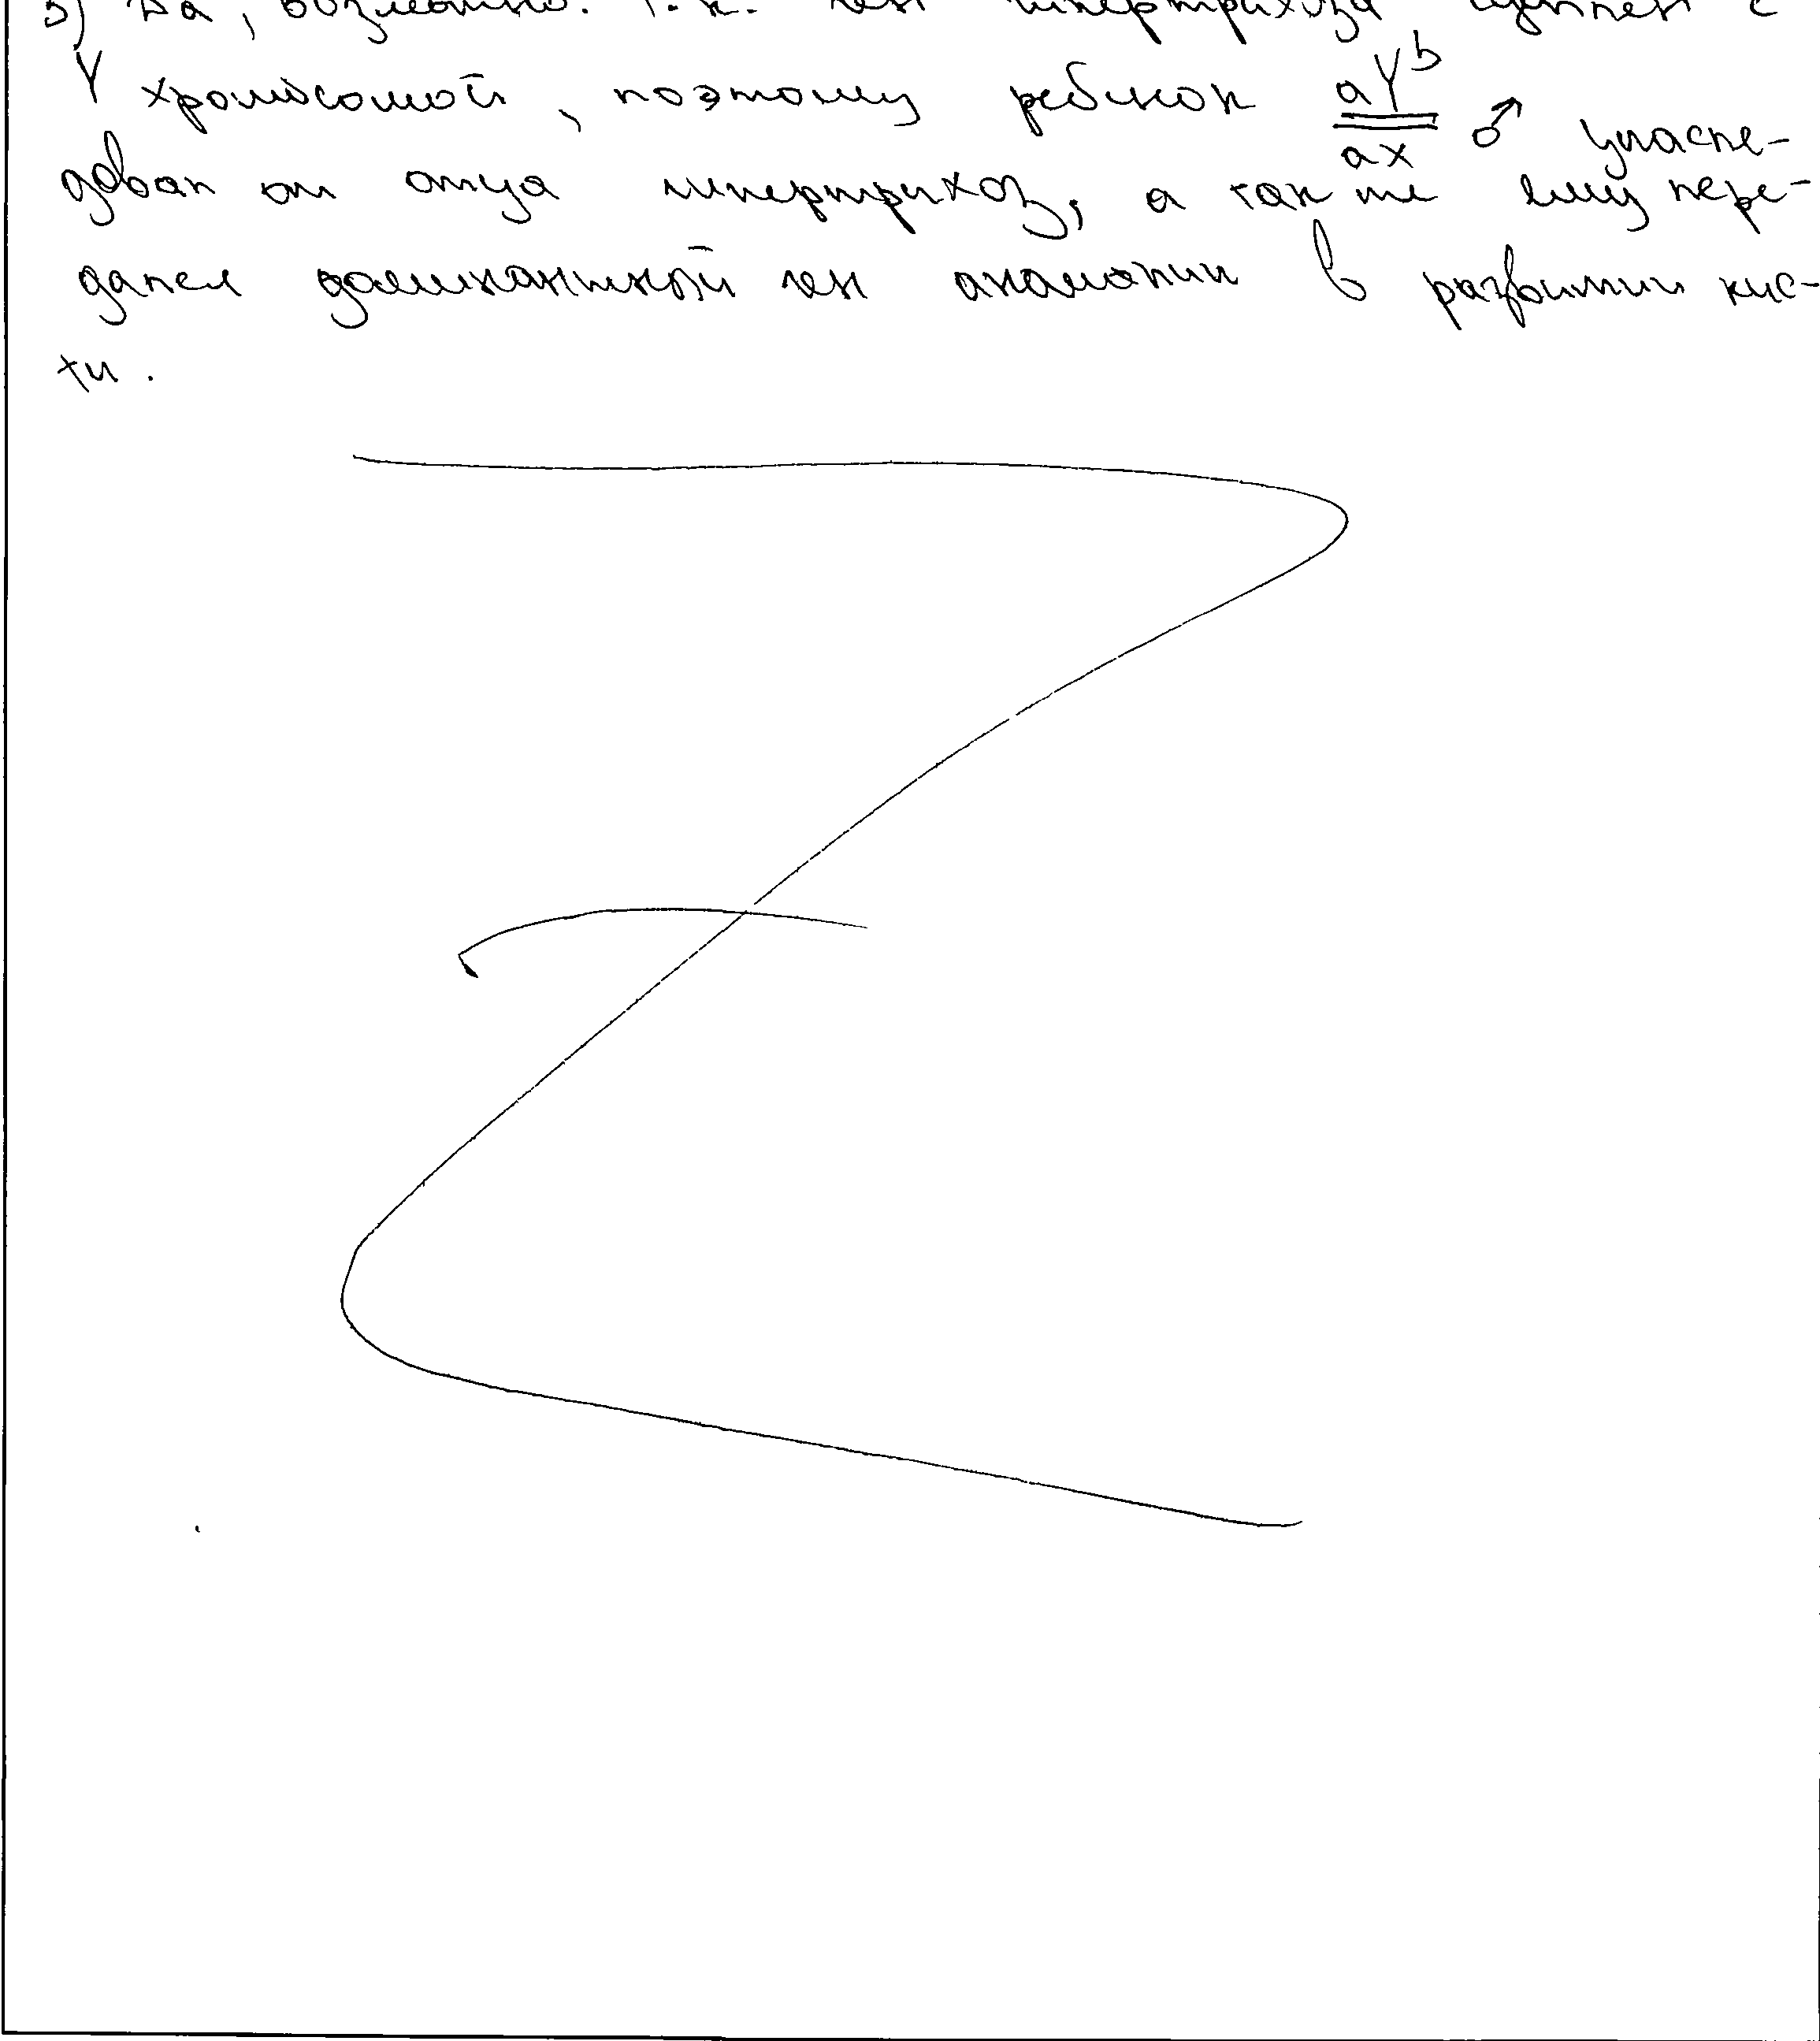 3) Да, возможно. Т.к. ген гипертрихоза сцеплен с
Y хромосомой, поэтому ребёнок aY^b/ax ♂ унасле-
довал от отца гипертрихоз, а так же ему пере-
дался доминантный ген аномалии в развитии кис-
ти.